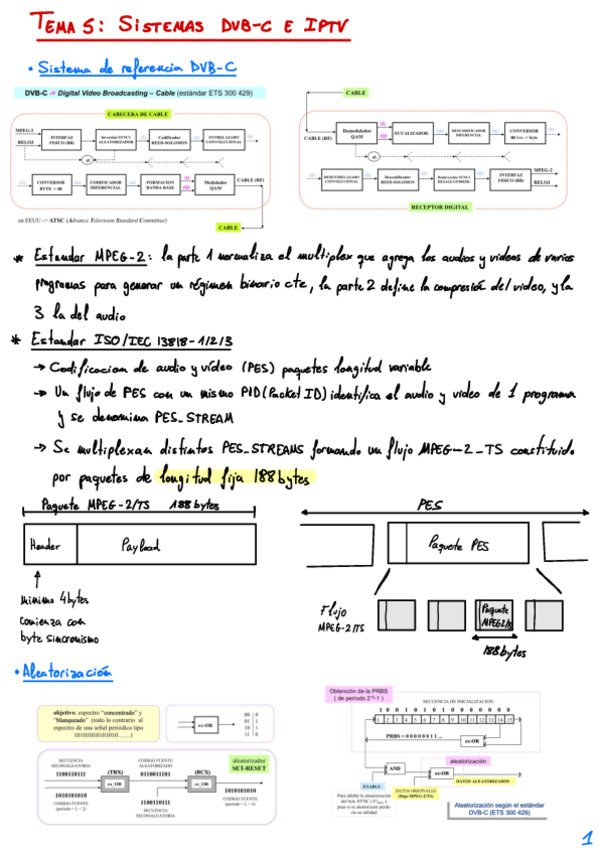 TEMA 5: SISTEMAS DVB-C E IPTV
• Sistema de referencia DVB-C
DVB-C -> Digital Video Broadcasting – Cable (estándar ETS 300 429)
CABECERA DE CABLE
MPEG-2
RELOJ
INTERFAZ FISICO (BB)
Inversión SYNC1 ALEATORIZADOR
Codificador REED-SOLOMON
ENTRELAZADO CONVOLUCIONAL
CONVERSOR
CODIFICADOR DIFERENCIAL
FORMACION BANDA BASE
(I)
(Q)
Modulador QAM
CABLE (RF)
CABLE
en EEUU -> ATSC (Advance Television Standard Committee)
CABLE
CABLE (RF)
Demodulador QAM
(I)
(Q)
ECUALIZADOR
DECODIFICADOR DIFERENCIAL
CONVERSOR
DESENTRELAZADO CONVOLUCIONAL
Decodificador REED-SOLOMON
Desinversión SYNC1 DESALEATORIZ.
INTERFAZ FISICO (BB)
MPEG-2
RELOJ
RECEPTOR DIGITAL
* Estandar MPEG-2: la parte 1 normaliza el multiplex que agrega los audios y videos de varios
programas para generar un régimen binario cte, la parte 2 define la compresión del video, y la
3 la del audio
* Estandar ISO/IEC 13818-1/2/3
→ Codificacion de audio y vídeo (PES) paquetes longitud variable
→ Un flujo de PES con un mismo PID (Packet ID) identifica el audio y video de 1 programa
y se denomina PES_STREAM
→ Se multiplexan distintos PES_STREAMS formando un flujo MPEG-2_TS constituido
por paquetes de longitud fija 188 bytes
Paquete MPEG-2/TS 188 bytes
Header
Payload
minimo 4 bytes
comienza con
byte sincronismo
PES
Paquete PES
Flujo
MPEG-2/TS
Paquete
MPEG2/TS
188 bytes
• Aleatorización
objetivo: espectro "concentrado" y
"blanqueado" (todo lo contrario al
espectro de una señal periódica tipo
10101010101010……)
ex-OR
00 | 0
01 | 1
10 | 1
11 | 0
aleatorizador
SET-RESET
SECUENCIA
SEUDOALEATORIA
1100110111
(TRX)
ex_OR
CODIGO FUENTE
ALEATORIZADO
0110011101
(RCX)
ex_OR
1010101010
CODIGO FUENTE
1100110111
SECUENCIA
SEUDOALEATORIA
1010101010
CODIGO FUENTE
Obtención de la PRBS
( de período 2¹⁵-1 )
SECUENCIA DE INICIALIZACION
1 0 0 1 0 1 0 1 0 0 0 0 0 0 0
1 2 3 4 5 6 7 8 9 10 11 12 13 14 15
PRBS = 0 0 0 0 0 0 1 1 ...
ex-OR
AND
aleatorización
ex-OR
DATOS ALEATORIZADOS
ENABLE
DATOS ORIGINALES
(flujo MPEG-2/TS)
Para inhibir la aleatorización
Aleatorización según el estándar
DVB-C (ETS 300 429)
1